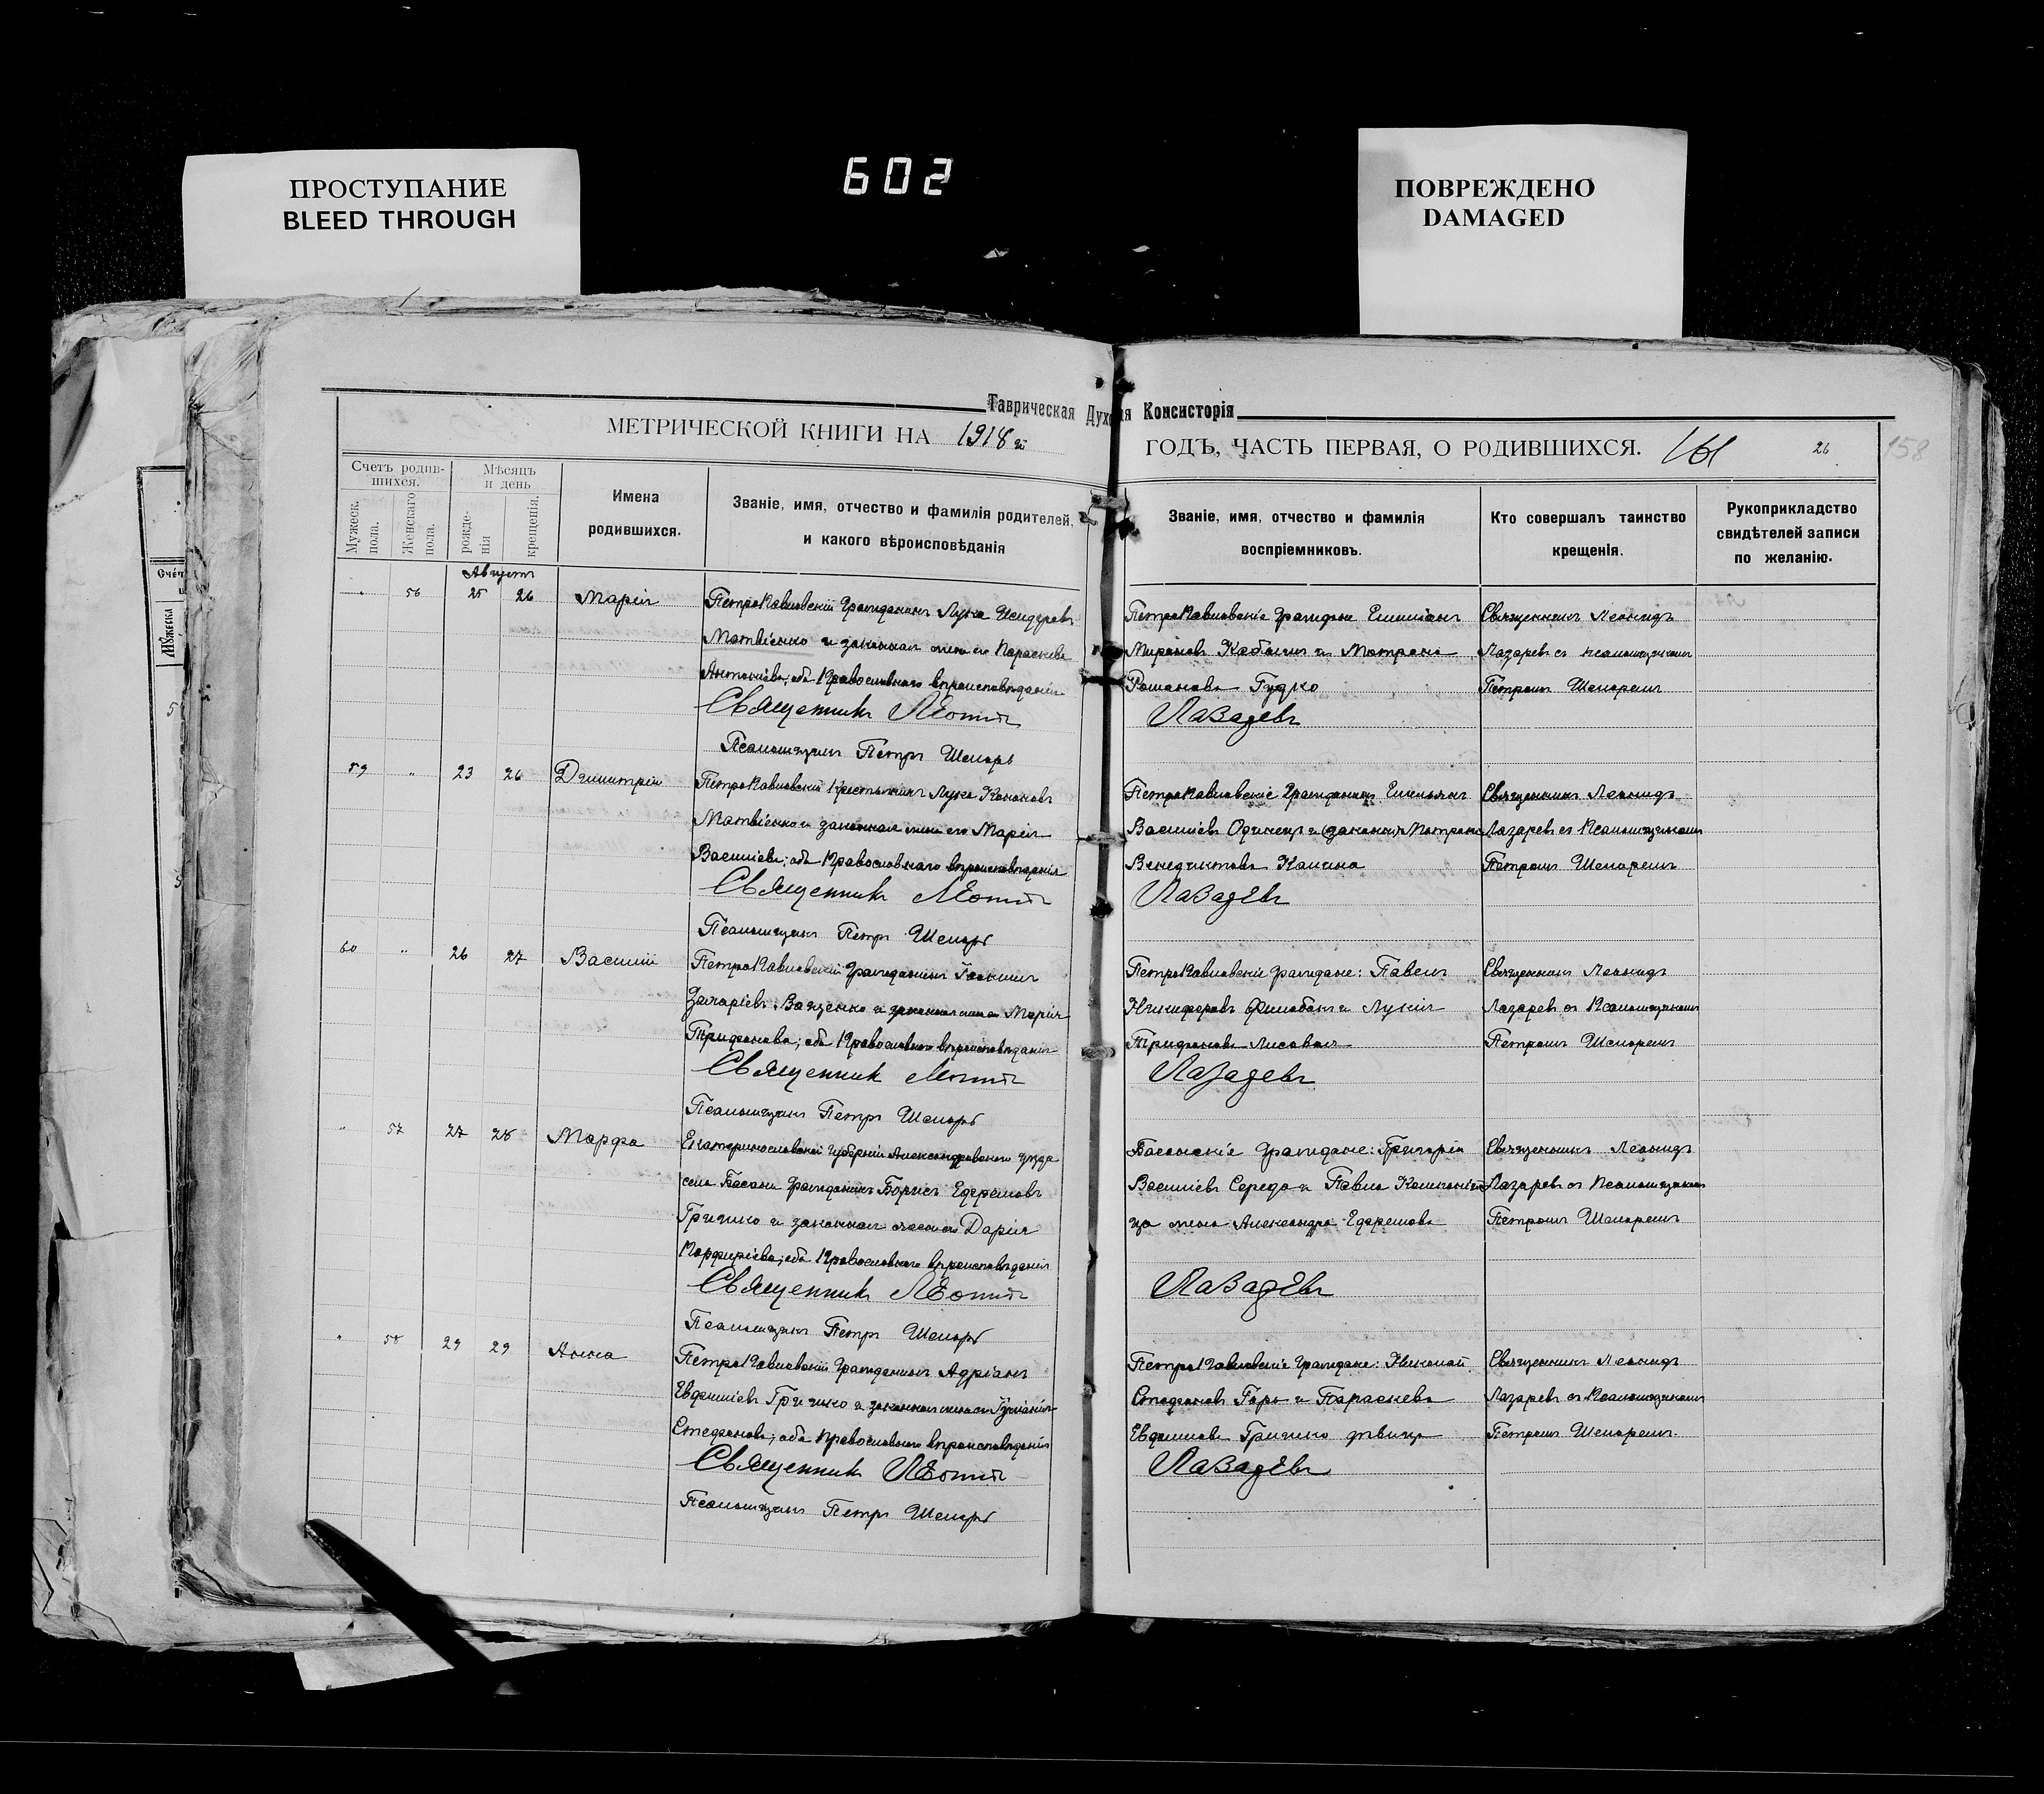 ПРОСТУПАНИЕ
BLEED THROUGH
602
ПОВРЕЖДЕНО
DAMAGED
Таврическая Духо я Консисторія
МЕТРИЧЕСКОЙ КНИГИ НА 1918 й
ГОДЪ, ЧАСТЬ ПЕРВАЯ, О РОДИВШИХСЯ. 161 26 158
Счетъ родив-
шихся.
Мужеск. пола.
Женскаго пола.
Мѣсяцъ
и день
рожде-
нія
крещенія.
Имена
родившихся.
Званіе, имя, отчество и фамилія родителей,
и какого вѣроисповѣданія
Званіе, имя, отчество и фамилія
воспріемниковъ.
Кто совершалъ таинство
крещенія.
Рукоприкладство
свидѣтелей записи
по желанію.
Августъ
" 56 25 26 Марія
ПетроПавловскій Гражданинъ Лука Исидоровъ
Матвіенко и законная жена его Параскева
Антоніева; оба Православнаго вѣроисповѣданія
Священникъ Леонидъ
Псаломщикъ Петръ Шепарь
ПетроПавловскіе граждане Емиліанъ
Мироновъ и Матрона
Романова Гудко
Лазаревъ
Священникъ Леонидъ
Лазаревъ съ псаломщикомъ
Петромъ Шепаремъ
59 " 23 26 Димитрій
ПетроПавловскій Крестьянинъ Лука Кононовъ
Матвіенко и законная жена его Марія
Василіева; оба Православнаго вѣроисповѣданія
Священникъ Леонидъ
Псаломщикъ Петръ Шепарь
ПетроПавловскіе Гражданинъ Емельянъ
Василіевъ Одинецъ и Матрона
Венедиктова Калина
Лазаревъ
Священникъ Леонидъ
Лазаревъ съ Псаломщикомъ
Петромъ Шепаремъ
60 " 26 27 Василій
ПетроПавловскій Гражданинъ Іоакимъ
Захаріевъ Ващенко и законная жена его Марія
Трифонова; оба Православнаго вѣроисповѣданія
Священникъ Леонидъ
Псаломщикъ Петръ Шепарь
ПетроПавловскіе граждане: Павелъ
Никифоровъ и Лукія
Трифонова Лисовая
Лазаревъ
Священникъ Леонидъ
Лазаревъ съ Псаломщикомъ
Петромъ Шепаремъ
" 57 27 28 Марфа
Екатеринославской губерніи Александровскаго уѣзда
села Басани Гражданинъ Борисъ
Гришко и законная жена его Дарія
Порфиріева; оба Православнаго вѣроисповѣданія
Священникъ Леонидъ
Псаломщикъ Петръ Шепарь
Басанскіе Граждане: Григорій
Василіевъ Середа и Павла
жена Александра
Лазаревъ
Священникъ Леонидъ
Лазаревъ съ Псаломщикомъ
Петромъ Шепаремъ
" 58 29 29 Анна
ПетроПавловскій Гражданинъ Адріанъ
Евфиміевъ Гришко и законная жена его Іуліанія
Стефанова; оба Православнаго вѣроисповѣданія
Священникъ Леонидъ
Псаломщикъ Петръ Шепарь
ПетроПавловскіе Граждане: Николай
Стефановъ и Параскева
Евфимова Гришко дѣвица
Лазаревъ
Священникъ Леонидъ
Лазаревъ съ Псаломщикомъ
Петромъ Шепаремъ.